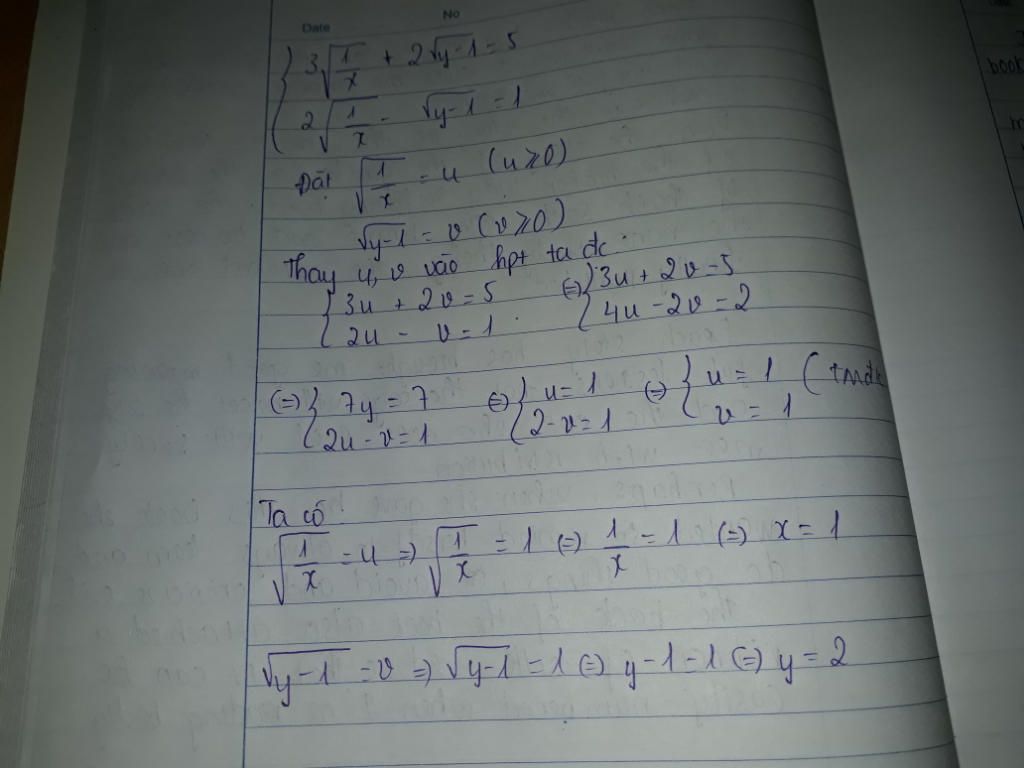 Date No
{ 3√(1/x) + 2√(y-1) = 5
2√(1/x) - √(y-1) = 1
Đặt √(1/x) = u (u ≥ 0)
√(y-1) = v (v ≥ 0)
Thay u, v vào hpt ta đc
{ 3u + 2v = 5 (=) { 3u + 2v = 5
2u - v = 1 4u - 2v = 2
(=) { 7y = 7 (=) { u = 1 (=) { u = 1 (tmđk
2u - v = 1 2 - v = 1 v = 1
Ta có
√(1/x) = u => √(1/x) = 1 (=) 1/x = 1 (=) x = 1
√(y-1) = v => √(y-1) = 1 (=) y - 1 = 1 (=) y = 2
book